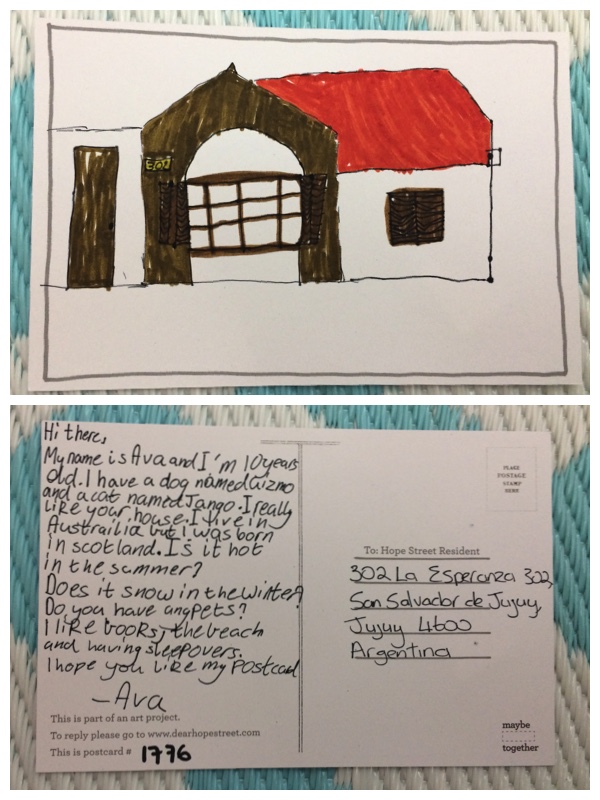 Hi there,
My name is Ava and I'm 10 years
old. I have a dog named Gizmo
and a cat named Jango. I really
like your house. I live in
Austrailia but I was born
in scotland. Is it hot
in the summer?
Does it snow in the winter?
Do you have any pets?
I like books, the beach
and having sleepovers.
I hope you like my Postcad
—Ava
This is part of an art project.
To reply please go to www.dearhopestreet.com
This is postcard # 1776
PLACE
POSTAGE
STAMP
HERE
To: Hope Street Resident
302 La Esperanza 302,
San Salvador de Jujuy,
Jujuy 4600
Argentina
maybe
together